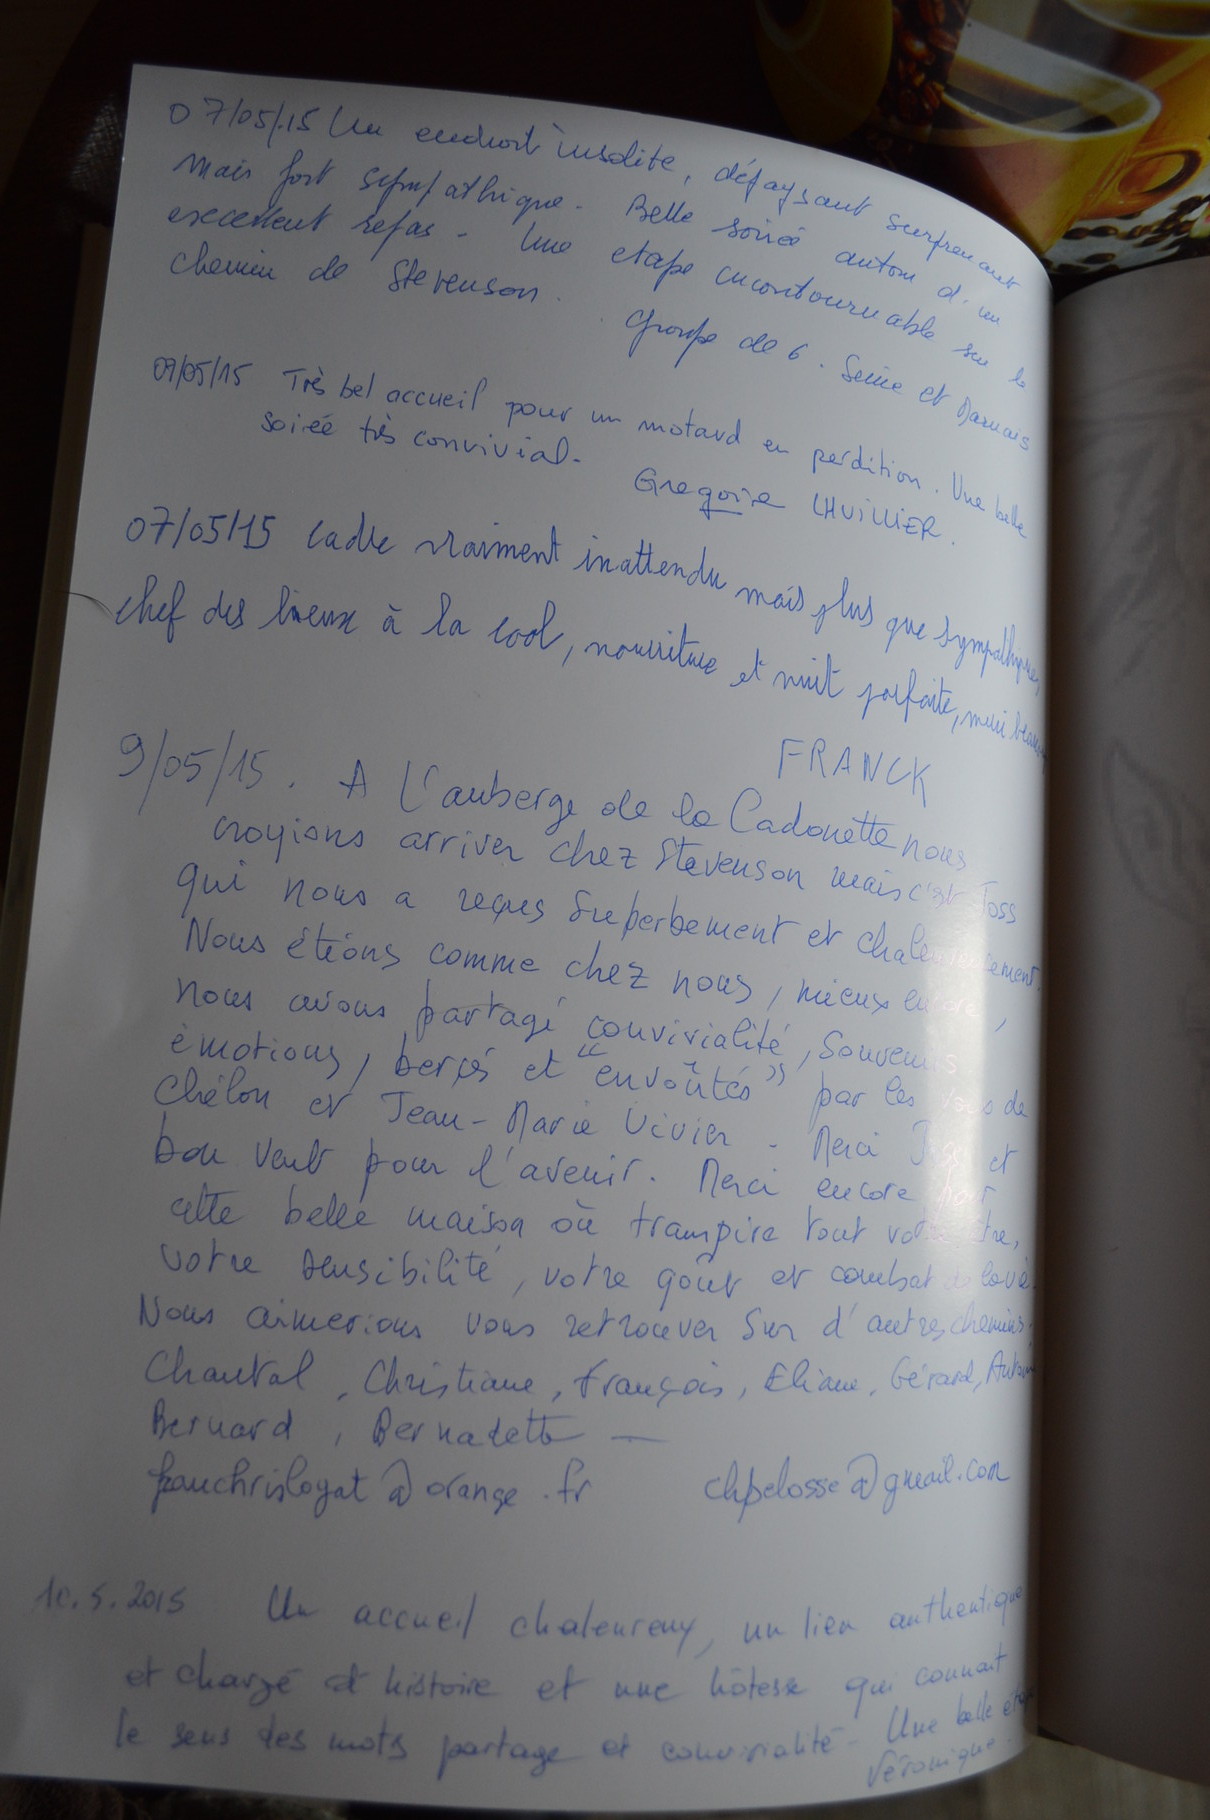 07/05/.15 Un endroit insolite, dépaysant surprenant
mais fort sympathique - Belle soirée autour d'un
excellent repas - Une etape incontournable sur le
chemin de Stevenson.
Groupe de 6. Seine et Marnais
09/05/15 Très bel accueil pour un motard en perdition. Une belle
soirée très convivial -
Gregoire LHUILLIER.
07/05/15 Cadre vraiment inattendu mais plus que sympathique,
chef des lieux à la cool, nourriture et nuit parfaite, merci
FRANCK
9/05/15. A l'auberge de la Cadouette nous
croyions arriver chez Stevenson mais c'est Joss
qui nous a reçus superbement et chaleureusement.
Nous étions comme chez nous, mieux encore,
nous avons partagé convivialité, souvenirs
émotions, bercés et "envoûtés" par les voix de
Chélon et Jean-Marie Vivier - Merci Joss et
bon vent pour l'avenir. Merci encore pour
cette belle maison où transpire tout votre être,
votre sensibilité, votre goût et combat
Nous aimerions vous retrouver sur d'autres chemins.
Chantal, Christiane, François, Eliane, Gérard,
Bernard, Bernadette —
franchrisloyat@orange.fr chpelosse@gmail.com
10.5.2015 Un accueil chaleureux, un lieu authentique
et chargé d'histoire et une hôtesse qui connait
le sens des mots partage et convivialité - Une belle étape
Véronique.